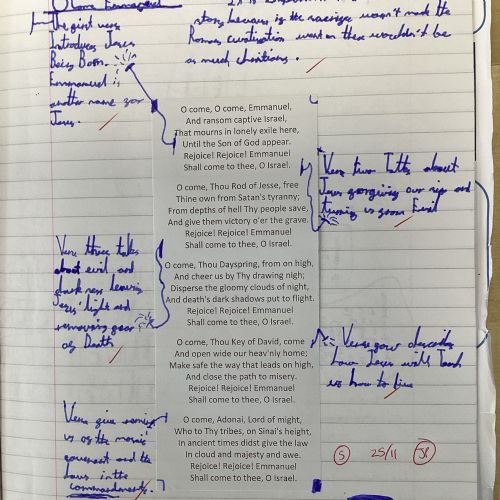 O Come Emmanuel
The first vers
Introduces Jesus
Being Born.
Emmanuel is
another name for
Jesus.
story because is the marriage wasn't made the
Roman civilisation went on there wouldn't be
as much christians.
O come, O come, Emmanuel,
And ransom captive Israel,
That mourns in lonely exile here,
Until the Son of God appear.
Rejoice! Rejoice! Emmanuel
Shall come to thee, O Israel.
O come, Thou Rod of Jesse, free
Thine own from Satan's tyranny;
From depths of hell Thy people save,
And give them victory o'er the grave.
Rejoice! Rejoice! Emmanuel
Shall come to thee, O Israel.
Vers two Talks about
Jesus forgiving our and
from Evil
O come, Thou Dayspring, from on high,
And cheer us by Thy drawing nigh;
Disperse the gloomy clouds of night,
And death's dark shadows put to flight.
Rejoice! Rejoice! Emmanuel
Shall come to thee, O Israel.
Vers three talks
about evil and
darkness
light and
removing fear
of Death
O come, Thou Key of David, come
And open wide our heav'nly home;
Make safe the way that leads on high,
And close the path to misery.
Rejoice! Rejoice! Emmanuel
Shall come to thee, O Israel.
Verse four describes
how Jesus will Teach
us how to live
O come, Adonai, Lord of might,
Who to Thy tribes, on Sinai's height,
In ancient times didst give the law
In cloud and majesty and awe.
Rejoice! Rejoice! Emmanuel
Shall come to thee, O Israel.
Vers five
us of the
covenant and the
laws in the
commandments.
S 25/11